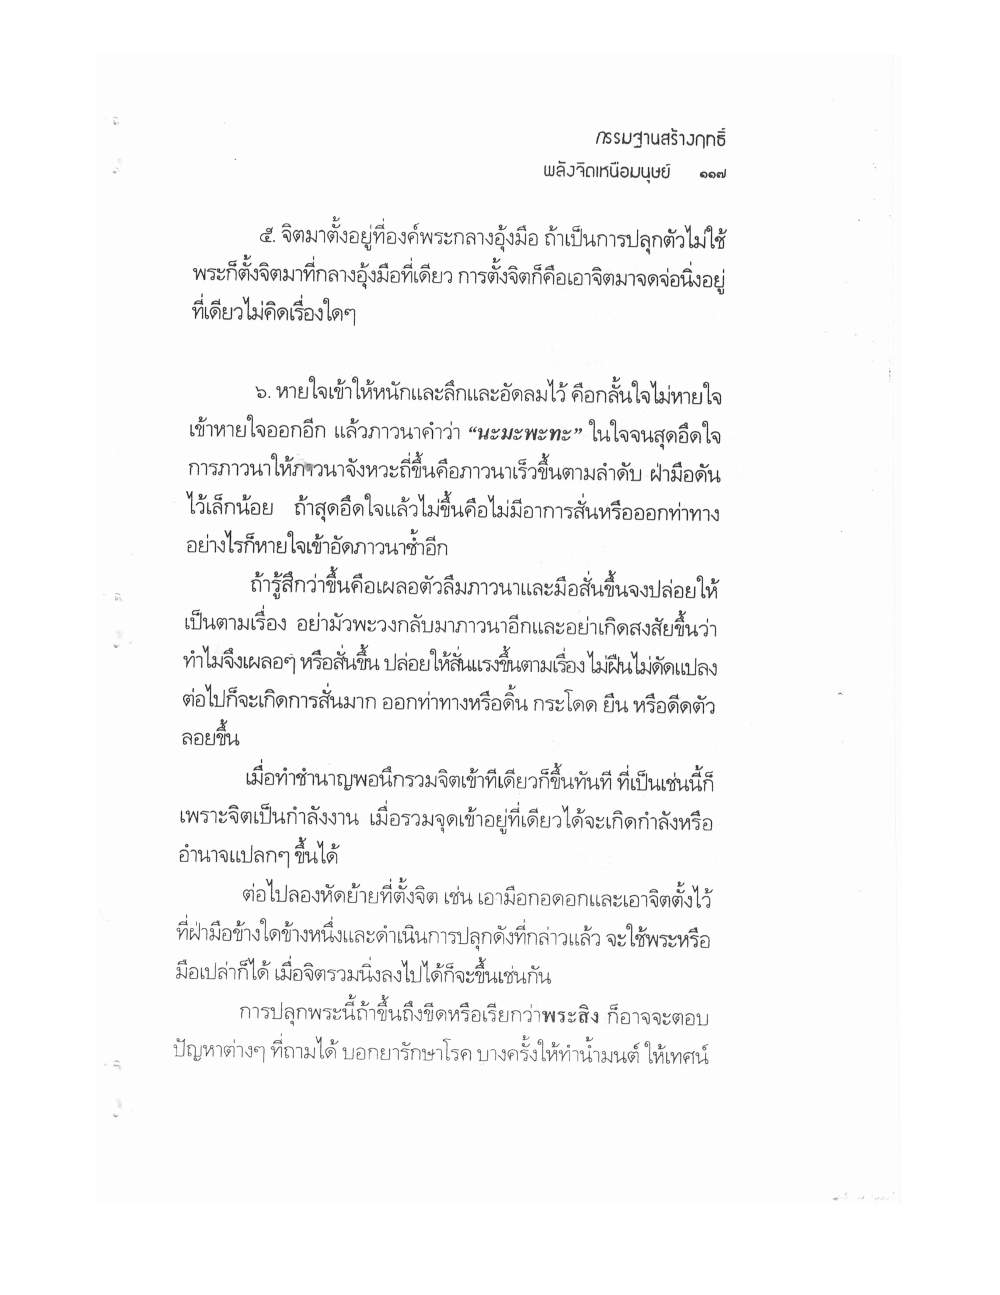 กรรมฐานสร้างฤทธิ์
พลังจิตเหนือมนุษย์ ๑๑๗
๕. จิตมาตั้งอยู่ที่องค์พระกลางอุ้งมือ ถ้าเป็นการปลุกตัวไม่ใช้
พระก็ตั้งจิตมาที่กลางอุ้งมือที่เดียว การตั้งจิตก็คือเอาจิตมาจดจ่อนิ่งอยู่
ที่เดียวไม่คิดเรื่องใดๆ
๖. หายใจเข้าให้หนักและลึกและอัดลมไว้ คือกลั้นใจไม่หายใจ
เข้าหายใจออกอีก แล้วภาวนาคำว่า “นะมะพะทะ” ในใจจนสุดอึดใจ
การภาวนาให้ภาวนาจังหวะถี่ขึ้นคือภาวนาเร็วขึ้นตามลำดับ ฝ่ามือดัน
ไว้เล็กน้อย ถ้าสุดอึดใจแล้วไม่ขึ้นคือไม่มีอาการสั่นหรือออกท่าทาง
อย่างไรก็หายใจเข้าอัดภาวนาซ้ำอีก
ถ้ารู้สึกว่าขึ้นคือเผลอตัวลืมภาวนาและมือสั่นขึ้นจงปล่อยให้
เป็นตามเรื่อง อย่ามัวพะวงกลับมาภาวนาอีกและอย่าเกิดสงสัยขึ้นว่า
ทำไมจึงเผลอๆ หรือสั่นขึ้น ปล่อยให้สั่นแรงขึ้นตามเรื่อง ไม่ฝืนไม่ดัดแปลง
ต่อไปก็จะเกิดการสั่นมาก ออกท่าทางหรือดิ้น กระโดด ยืน หรือดีดตัว
ลอยขึ้น
เมื่อทำชำนาญพอนึกรวมจิตเข้าทีเดียวก็ขึ้นทันที ที่เป็นเช่นนี้ก็
เพราะจิตเป็นกำลังงาน เมื่อรวมจุดเข้าอยู่ที่เดียวได้จะเกิดกำลังหรือ
อำนาจแปลกๆ ขึ้นได้
ต่อไปลองหัดย้ายที่ตั้งจิต เช่น เอามือกอดอกและเอาจิตตั้งไว้
ที่ฝ่ามือข้างใดข้างหนึ่งและดำเนินการปลุกดังที่กล่าวแล้ว จะใช้พระหรือ
มือเปล่าก็ได้ เมื่อจิตรวมนิ่งลงไปได้ก็จะขึ้นเช่นกัน
การปลุกพระนี้ถ้าขึ้นถึงขีดหรือเรียกว่าพระสิง ก็อาจจะตอบ
ปัญหาต่างๆ ที่ถามได้ บอกยารักษาโรค บางครั้งให้ทำน้ำมนต์ ให้เทศน์